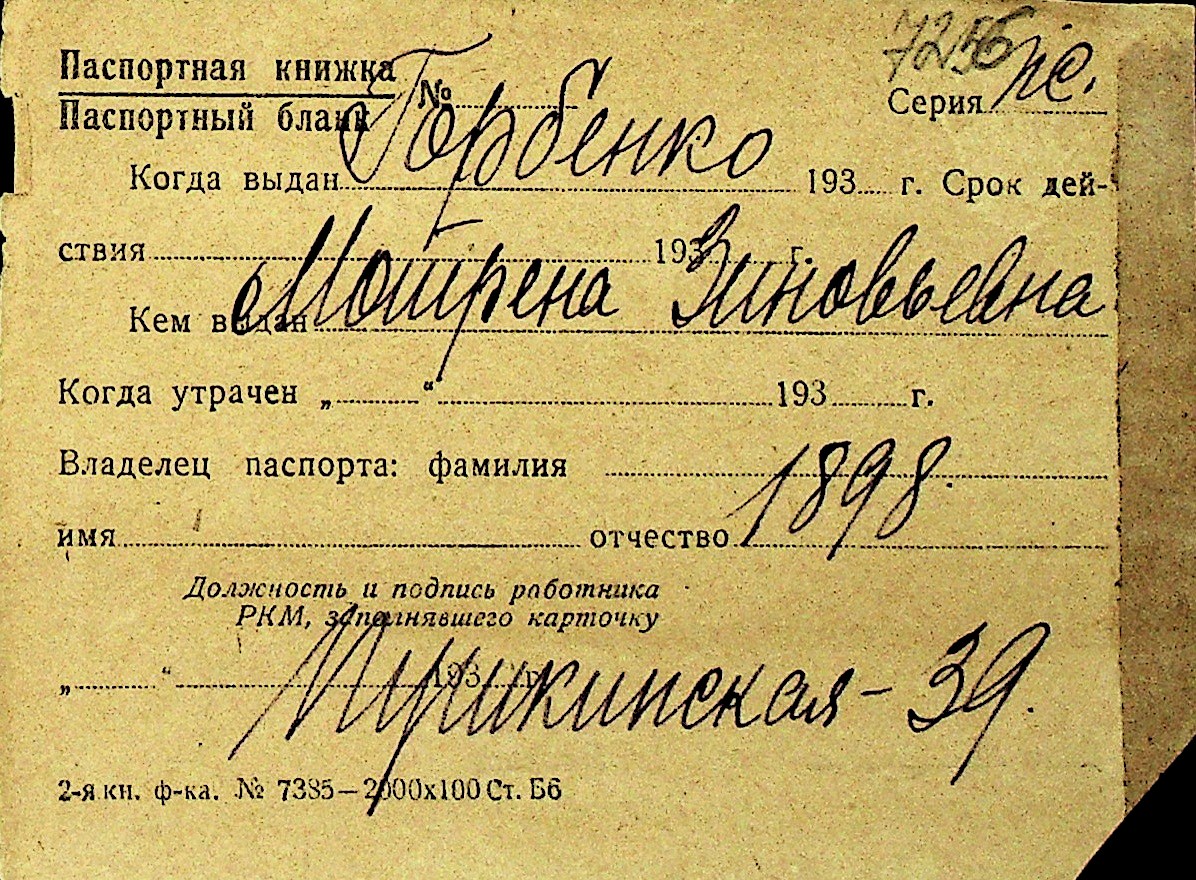 7256
Паспортная книжка
Паспортный бланк № Серия
Горбенко
Когда выдан 193 г. Срок дей-
ствия 193 г.
Мотрена Зиновьевна
Кем выдан
Когда утрачен „ “ 193 г.
Владелец паспорта: фамилия
1898.
имя отчество
Должность и подпись работника
РКМ, заполнявшего карточку
„ “ 193 г.
Пушкинская – 39.
2-я кн. ф-ка. № 7385—2000х100 Ст. Б6